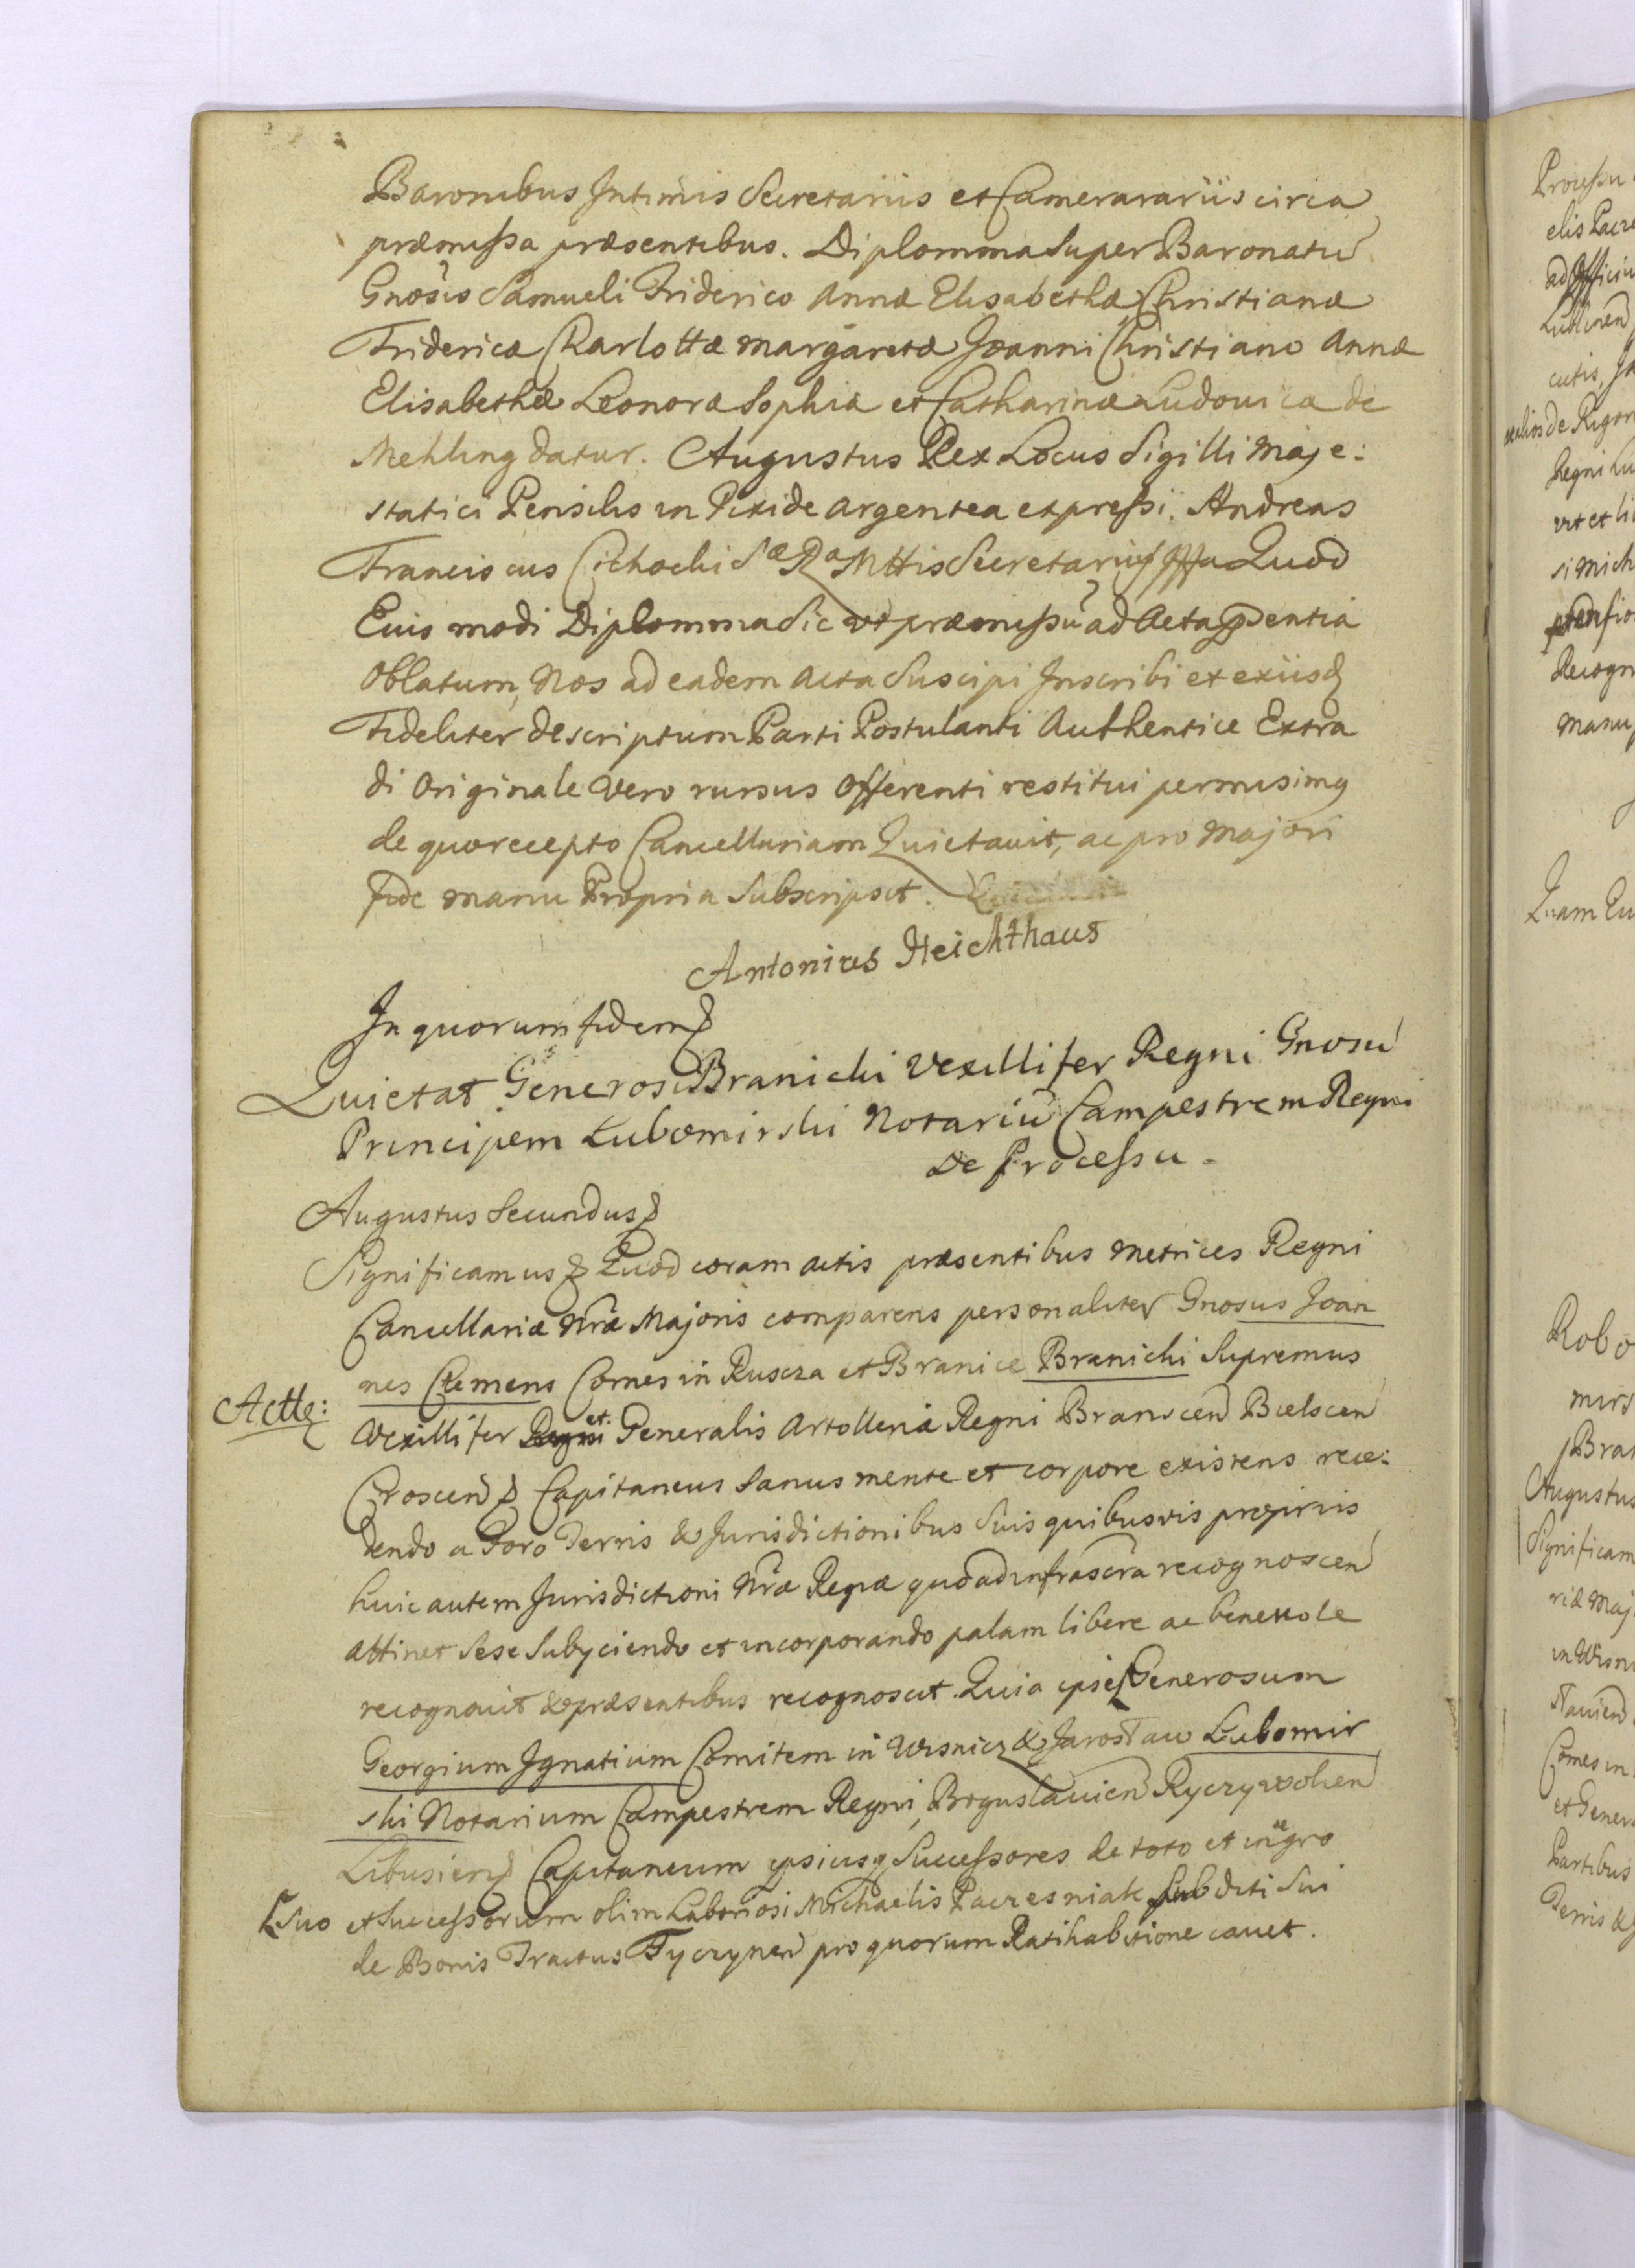 Baronibus Intimis Secretariis et Camerarariis circa
præmissa præsentibus. Diplomma super Baronatu
Gnosis Samueli Friderico Annæ Elisabethæ Christianæ
Fridericæ Charlottæ Margaretæ Joanni Christiano Annæ
Elisabethæ Leonoræ Sophiæ et Catharinæ Ludovicæ de
Mehling datur. Augustus Rex Locus Sigilli Maje:
statici Pensilis in Pixide argentea expressi. Andreas
Franciscus Cichocki Sæ Ræ Mttis Secretarius Quod
Euis modi Diplomma sic ut præmissu ad Acta pntia
Oblatum, Nos ad eadem Acta Suscipi Inscribi et exiisq
Fideliter descriptum Parti Postulanti Authentice Extra
di Originale Vero rursus Offerenti restitui permisimq
de quo recepto Cancellariam Quietavit, ac pro Majori
fide manu Propria Subscripsit.
Antonius Heichthaus
In quorum fidem
Quietat Generosus Branicki Vexillifer Regni Gnosu
Principem Lubomirski Notariu Campestrem Regni
De Processu -
Augustus Secundus
Significamus Quod coram actis præsentibus Metrices Regni
Cancellariæ Nræ Majoris comparens personaliter Gnosus Joan
nes Clemens Comes in Ruscza et Branice Branicki Supremus
Vexillifer Regni et Generalis Artolleriæ Regni Branscen Bielscen
Croscen Capitaneus Sanus mente et corpore existens rece:
dendo a Foro Terris & Jurisdictionibus Suis quibusvis propriis
huic autem Jurisdictioni Nræ Regiæ quoad infrascra recognoscen
attinet Sese Subyciendo et incorporando palam libere ac benevole
recognovit & præsentibus recognoscit. Quia ipse Generosum
Georgium Ignatium Comitem in Wisnicz & Jarosław Lubomir
ski Notarium Campestrem Regni, Boguslavien Ryczywolien
Libusien Capitaneum ipsiusq Successores de toto et integro
Suo et Successorum olim Laboriosi Michaelis Paczesniak Subditi Sui
de Bonis Tractus Tyczynen pro quorum Ratihabitione cavet.